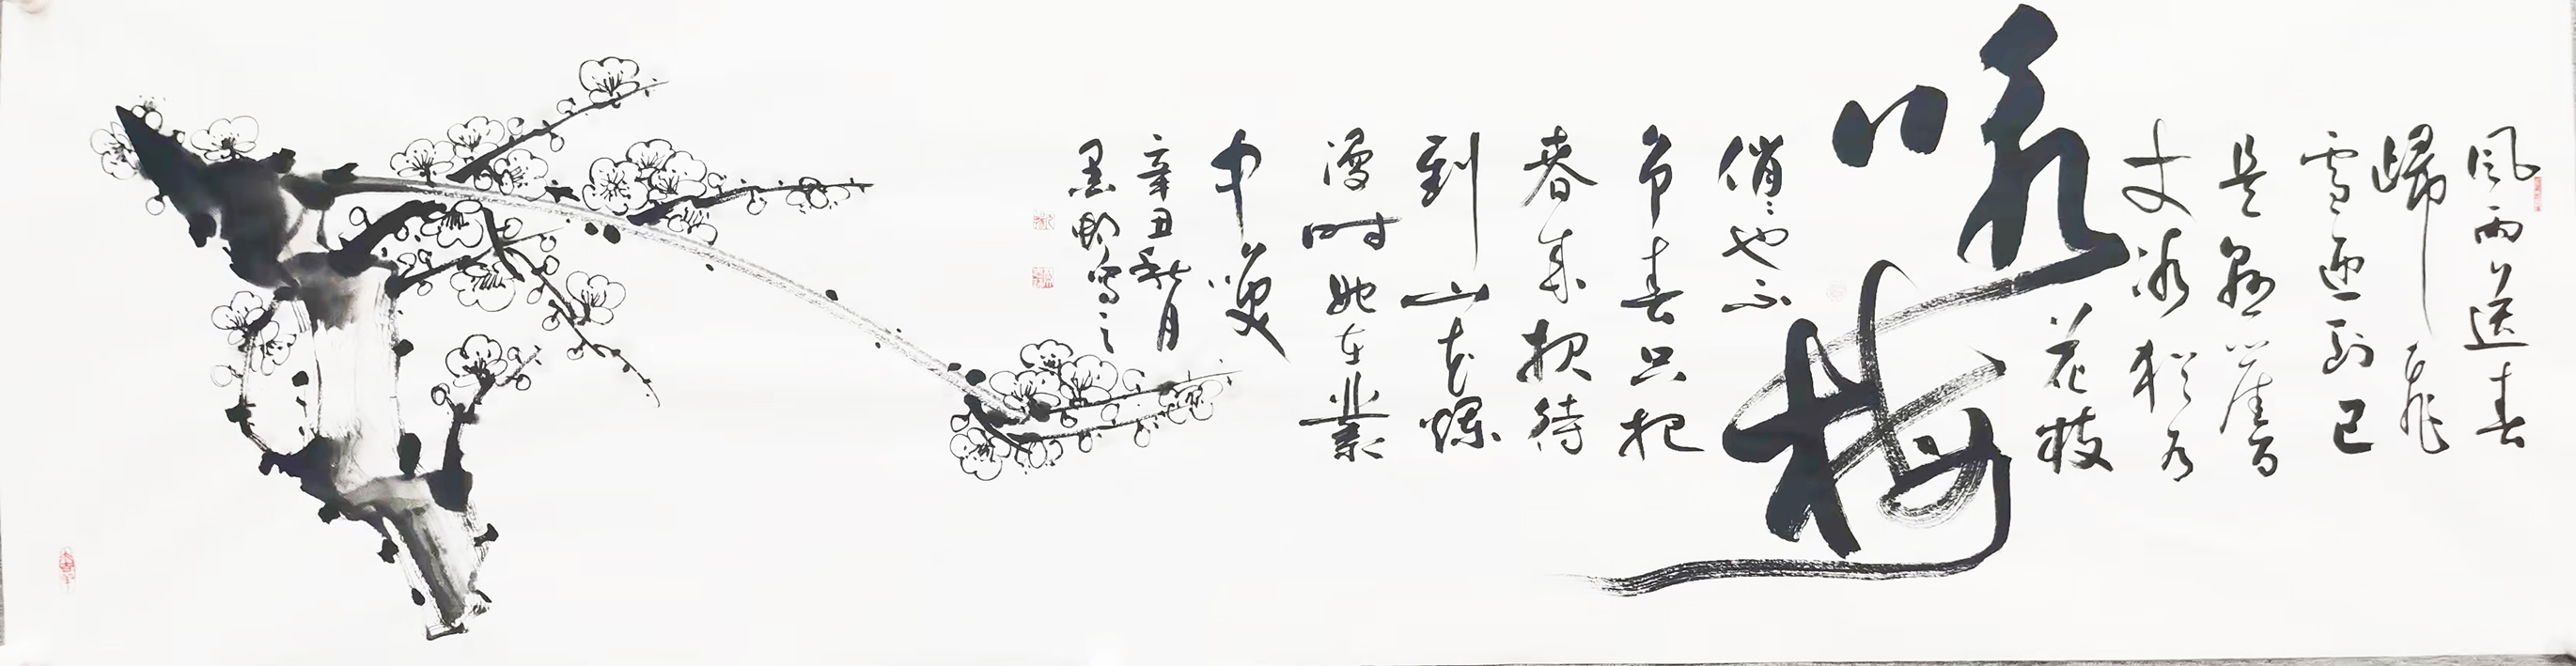 風雨送春
歸飛
雪迎到已
是懸崖百
丈冰猶有
花枝
咏梅
俏〻也不
争春只把
春來報待
到山花爛
漫时她在叢
中笑
辛丑秋月
墨寫之